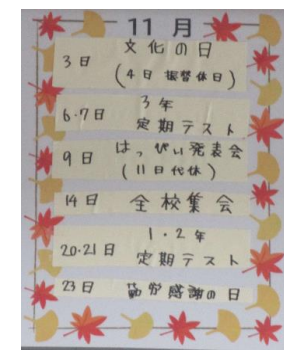 11月
3日 文化の日
(4日 振替休日)
6・7日 3年
定期テスト
9日 はっぴぃ発表会
(11日代休)
14日 全校集会
20・21日 1・2年
定期テスト
23日 勤労感謝の日